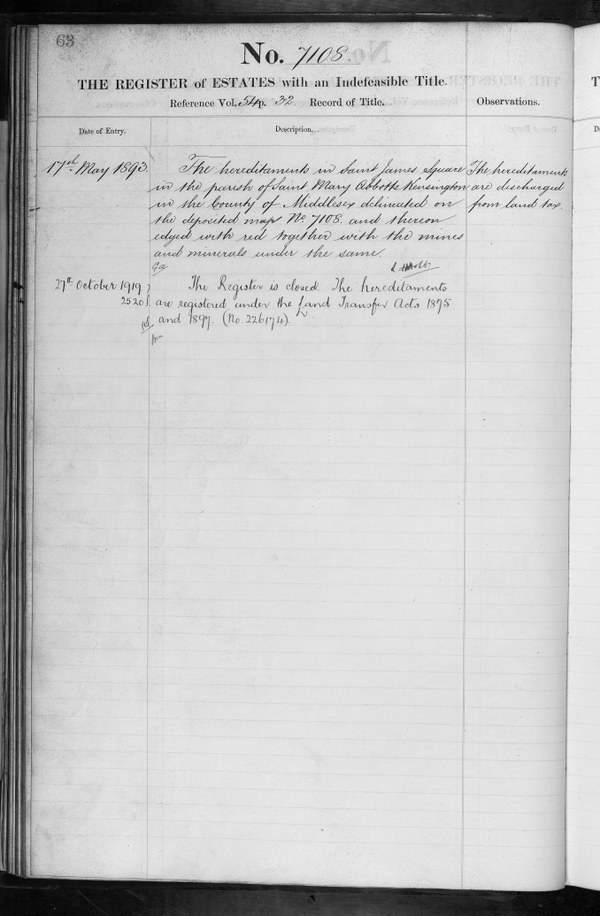 63
No. 7108
THE REGISTER of ESTATES with an Indefeasible Title.
Reference Vol. 54 p. 32 Record of Title.
Observations.
Date of Entry.
Description.
17th May 1893.
The hereditaments in Saint James Square
in the parish of Saint Mary Abbotts Kensington
in the County of Middlesex delineated on
the deposited map No. 7108 and thereon
edged with red together with the mines
and minerals under the same.
The hereditaments
are discharged
from land tax
27th October 1919
2520
The Register is closed. The hereditaments
are registered under the Land Transfer Acts 1875
and 1897. (No. 226174).